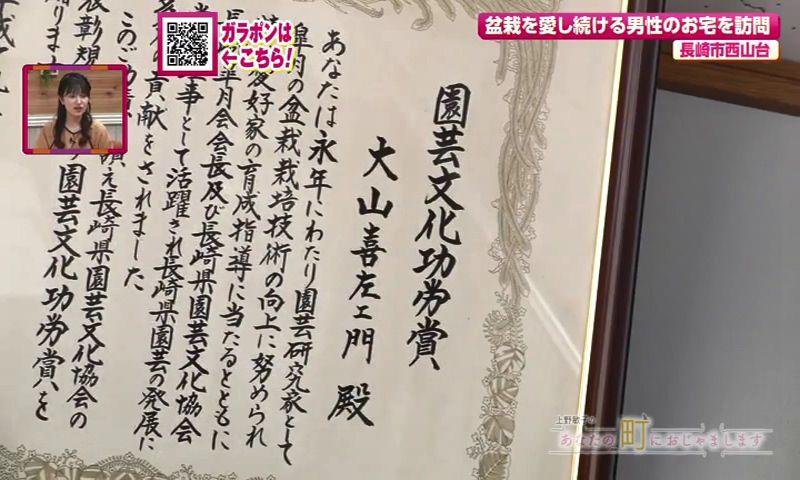 盆栽を愛し続ける男性のお宅を訪問
長崎市西山台
ガラポンは
←こちら!
園芸文化功労賞
大山喜左エ門 殿
あなたは永年にわたり園芸研究家として
皐月の盆栽栽培技術の向上に努められ
愛好家の育成指導に当たるとともに
皐月会会長及び長崎県園芸文化協会
事として活躍され長崎県園芸の発展に
貢献をされました
このご功績
え長崎県園芸文化協会の
表彰規
園芸文化功労賞を
上野敏子の
あなたの町におじゃまします